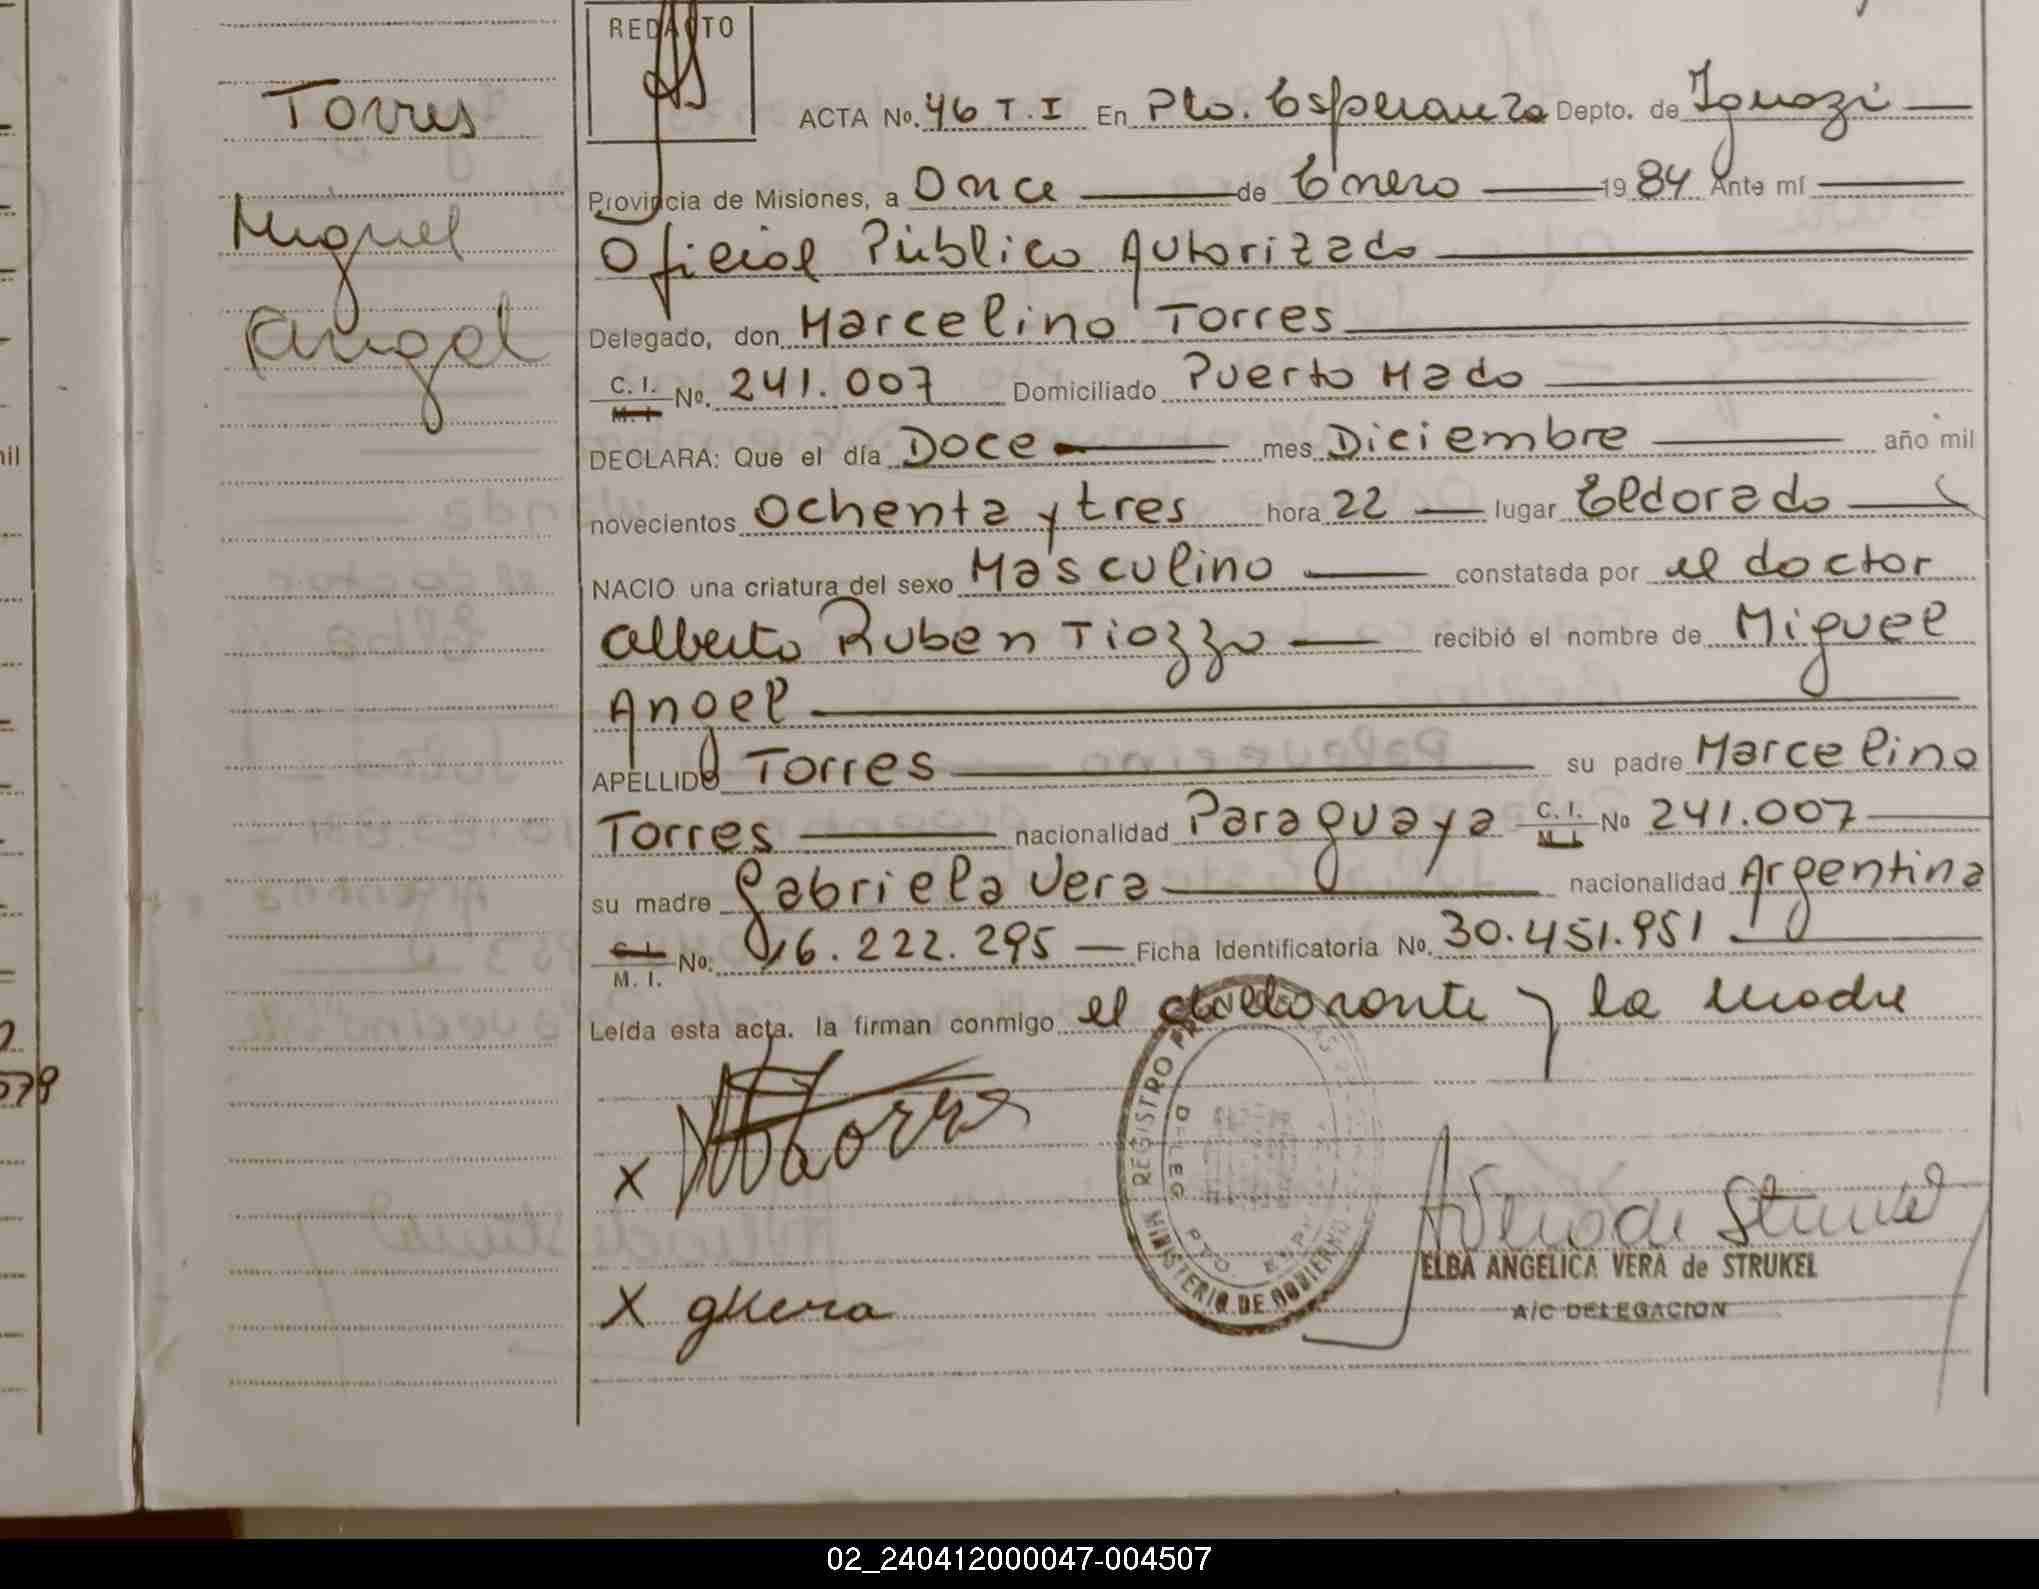 REDACTO
Torres
Miguel
Angel
ACTA No. 46 T.I En Pto. Esperanza Depto. de Iguazú
Provincia de Misiones, a Once de Enero 1984 Ante mí
Oficial Público Autorizado
Delegado, don Marcelino Torres
C. I. M. I No. 241.007 Domiciliado Puerto Mado
DECLARA: Que el día Doce mes Diciembre año mil
novecientos ochenta y tres hora 22 lugar Eldorado
NACIO una criatura del sexo Masculino constatada por el doctor
Alberto Ruben Tiozzo recibió el nombre de Miguel
Angel
APELLIDO Torres su padre Marcelino
Torres nacionalidad Paraguaya C. I. M. I No 241.007
su madre Gabriela Vera nacionalidad Argentina
C. I. M. I. No. 16.222.295 Ficha Identificatoria No. 30.451.951
Leída esta acta. la firman conmigo el declarante y la madre
X Torres
X gVera
REGISTRO
DELEG PTO
MINISTERIO DE GOBIERNO
ELBA ANGELICA VERA de STRUKEL
A/C DELEGACION
il
579
02_240412000047-004507